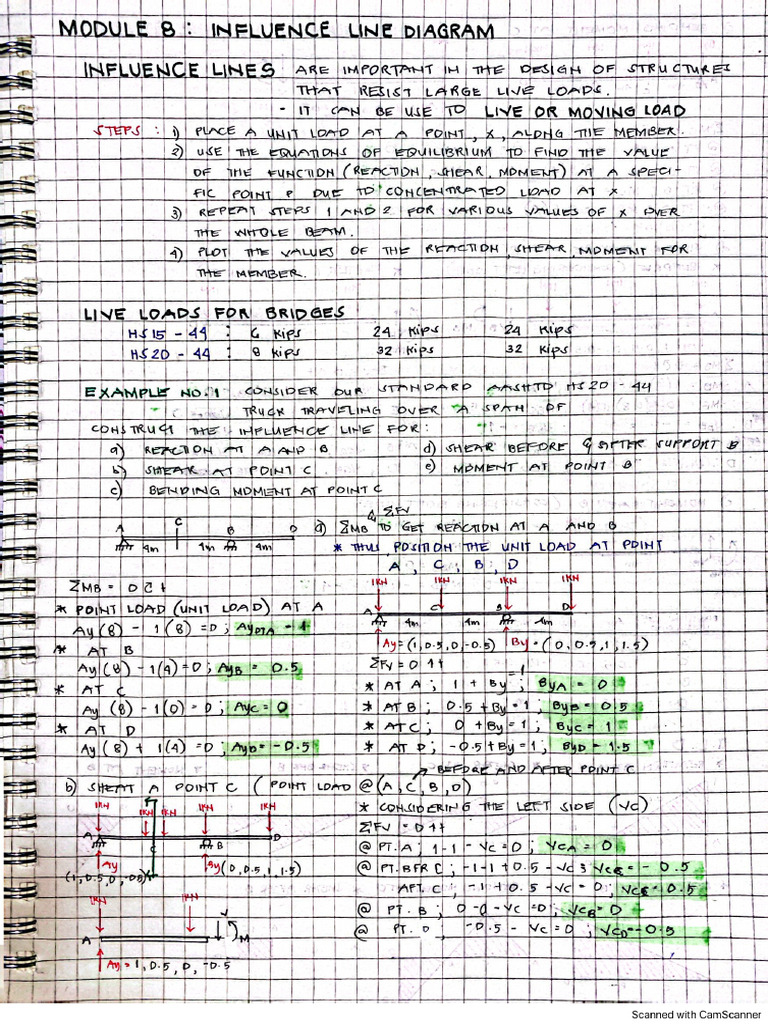 MODULE 8 : INFLUENCE LINE DIAGRAM
INFLUENCE LINES ARE IMPORTANT IN THE DESIGN OF STRUCTURES
THAT RESIST LARGE LIVE LOADS.
- IT CAN BE USE TO LIVE OR MOVING LOAD
STEPS : 1) PLACE A UNIT LOAD AT A POINT, X, ALONG THE MEMBER.
2) USE THE EQUATIONS OF EQUILIBRIUM TO FIND THE VALUE
OF THE FUNCTION (REACTION, SHEAR, MOMENT) AT A SPECI-
FIC POINT P DUE TO CONCENTRATED LOAD AT X
3) REPEAT STEPS 1 AND 2 FOR VARIOUS VALUES OF X OVER
THE WHOLE BEAM.
4) PLOT THE VALUES OF THE REACTION, SHEAR, MOMENT FOR
THE MEMBER.
LIVE LOADS FOR BRIDGES
HS15 - 44 : 6 kips 24 kips 24 kips
HS20 - 44 : 8 kips 32 kips 32 kips
EXAMPLE NO. 1 CONSIDER OUR STANDARD AASHTO HS20 - 44
TRUCK TRAVELING OVER A SPAN OF
CONSTRUCT THE INFLUENCE LINE FOR:
a) REACTION AT A AND B
b) SHEAR AT POINT C.
c) BENDING MOMENT AT POINT C
d) SHEAR BEFORE & AFTER SUPPORT B
e) MOMENT AT POINT B
A C B D
4m 4m 4m
& ΣFV
a) ΣMB TO GET REACTION AT A AND B
* THUS, POSITION THE UNIT LOAD AT POINT
A , C , B , D
1KN 1KN 1KN 1KN
A C B D
4m 4m 4m
Ay = (1, 0.5, 0, -0.5) By = (0, 0.5, 1, 1.5)
ΣMB = 0 ↻ +
* POINT LOAD (UNIT LOAD) AT A
Ay (8) - 1 (8) = 0 ; Ay PTA = 1
* AT B
Ay (8) - 1(4) = 0 ; AyB = 0.5
* AT C
Ay (8) - 1(0) = 0 ; AyC = 0
* AT D
Ay (8) + 1(4) = 0 ; AyD = -0.5
ΣFv = 0 ↑+
* AT A ; 1 + By = 1 ; ByA = 0
* AT B ; 0.5 + By = 1 ; ByB = 0.5
* AT C ; 0 + By = 1 ; ByC = 1
* AT D ; -0.5 + By = 1 ; ByD = 1.5
BEFORE AND AFTER POINT C
b) SHEAT A POINT C ( POINT LOAD @ (A, C, B, D)
1KN 1KN 1KN 1KN 1KN
A C B D
Ay By (0, 0.5, 1, 1.5)
(1, 0.5, 0, -0.5)
1KN 1KN V
A M
Ay = 1, 0.5, 0, -0.5
* CONSIDERING THE LEFT SIDE (VC)
ΣFV = 0 ↑+
@ PT. A ; 1 - 1 - VC = 0 ; VCA = 0
@ PT. BFR C ; -1 + 0.5 - VC ; VCC = -0.5
AFT. C ; -1 + 0.5 - VC = 0 ; VCC = 0.5
@ PT. B ; 0 - 0 - VC = 0 ; VCB = 0
@ PT. D ; -0.5 - VC = 0 ; VCD = -0.5
Scanned with CamScanner